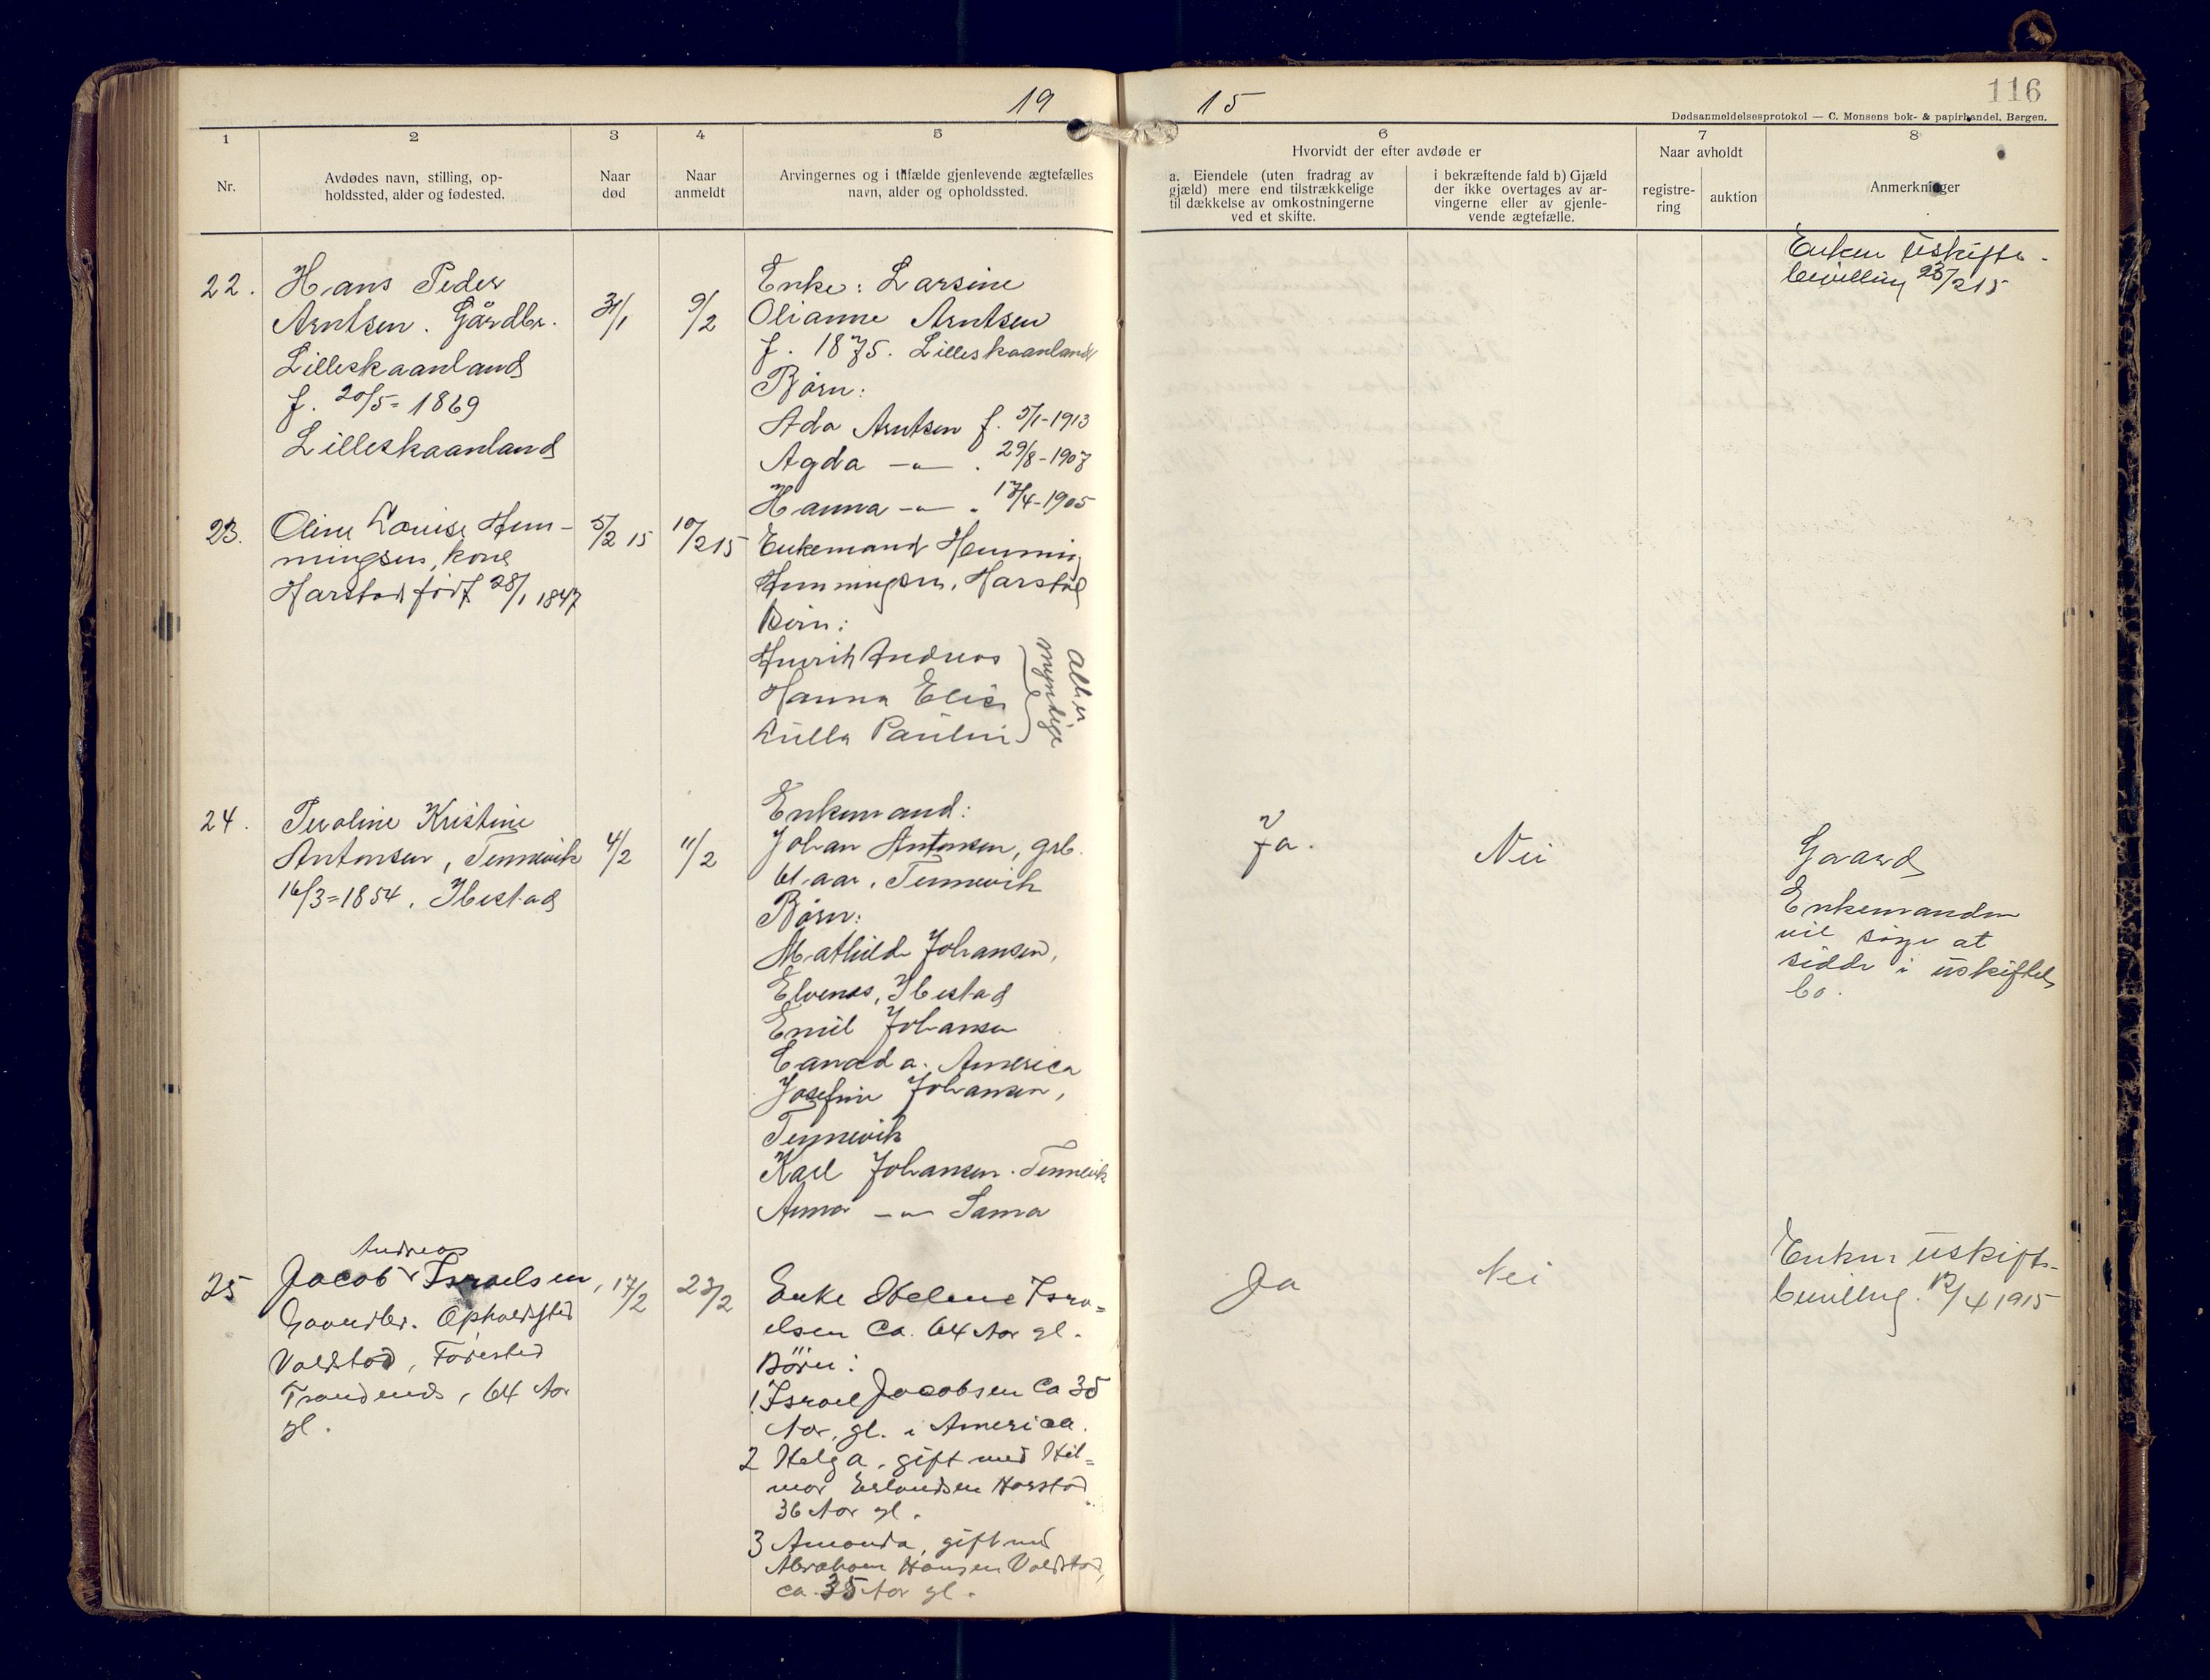 19
15
116
Dødsanmeldelsesprotokol — C. Monsens bok- & papirhandel, Bergen.
1
2
3
4
5
6
7
8
Nr.
Avdødes navn, stilling, op-
holdssted, alder og fødested.
Naar
død
Naar
anmeldt
Arvingernes og i tilfælde gjenlevende ægtefælles
navn, alder og opholdssted.
Hvorvidt der efter avdøde er
a. Eiendele (uten fradrag av
gjæld) mere end tilstrækkelige
til dækkelse av omkostningerne
ved et skifte.
i bekræftende fald b) Gjæld
der ikke overtages av ar-
vingerne eller av gjenle-
vende ægtefælle.
Naar avholdt
registre-
ring
auktion
Anmerkninger
22.
Hans Peder
Arntsen. Gårdbr.
Lilleskaanland
f. 20/5= 1869
Lilleskaanland
31/1
9/2
Enke: Larsine
Olianne Arntsen
f. 1875. Lilleskaanland
Børn:
Ada Arntsen f. 5/1-1913
Agda —"— . 29/8-1907
Hanna —"— . 17/4-1905
Enken uskifte-
bevilling 23/2 15
23.
Oline Louise Hen-
ningsen, kone
Harstad født 28/1 1847
5/2 15
10/2 15
Enkemand Henning
Henningsen, Harstad
Børn:
Henrik Andreas
Hanna Elise
Lulla Pauline
Alle er
myndige
24.
Peroline Kristine
Antonsen, Tennevik
16/3=1854. Ibestad
4/2
11/2
Enkemand:
Johan Antonsen, grb.
61 aar. Tennevik
Børn:
Mathilde Johansen,
Elvenes, Ibestad
Emil Johansen
Canada. America
Josefine Johansen,
Tennevik
Karl Johansen. Tennevik
Anna —"— Sama
Ja.
Nei
Gaard
Enkemanden
vil søge at
sidde i uskiftet
bo.
25
Andreas
Jacob Israelsen,
Gaardbr. Opholdssted
Voldstad, Fødested
Trondenes, 64 Aar
gl.
17/2
23/2
Enke Helene Isra=
elsen Ca. 64 Aar gl.
Børn:
1. Israel Jacobsen Ca 35
Aar, gl. i America.
2 Helga, gift med Hil=
mar Erlandsen Harstad
36 Aar gl.
3 Amanda, gift med
Abraham Hansen Voldstad,
ca. 35 Aar gl.
Ja
Nei
Enken uskifte-
bevilling. 12/4 1915